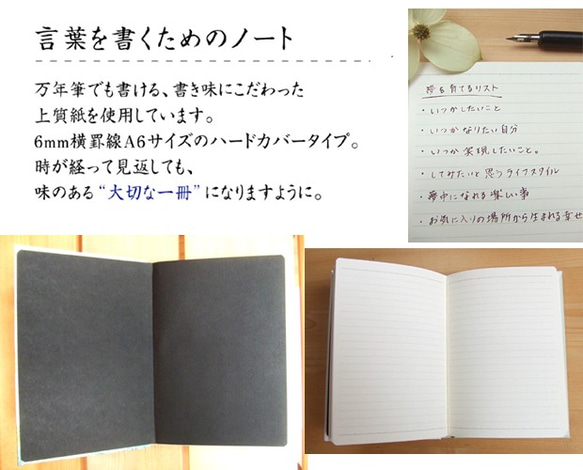 言葉を書くためのノート
万年筆でも書ける、書き味にこだわった
上質紙を使用しています。
6mm横罫線A6サイズのハードカバータイプ。
時が経って見返しても、
味のある“大切な一冊”になりますように。
夢を育てるリスト
・いつかしたいこと
・いつかなりたい自分
・いつか実現したいこと。
・してみたいと思うライフスタイル
・夢中になれる楽しい事
・お気に入りの場所から生まれる幸せ